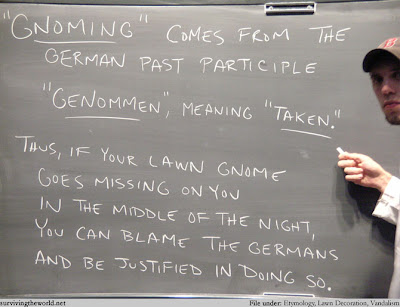 "GNOMING" COMES FROM THE
GERMAN PAST PARTICIPLE
"GENOMMEN", MEANING "TAKEN."
THUS, IF YOUR LAWN GNOME
GOES MISSING ON YOU
IN THE MIDDLE OF THE NIGHT,
YOU CAN BLAME THE GERMANS
AND BE JUSTIFIED IN DOING SO.
survivingtheworld.net File under: Etymology, Lawn Decoration, Vandalism